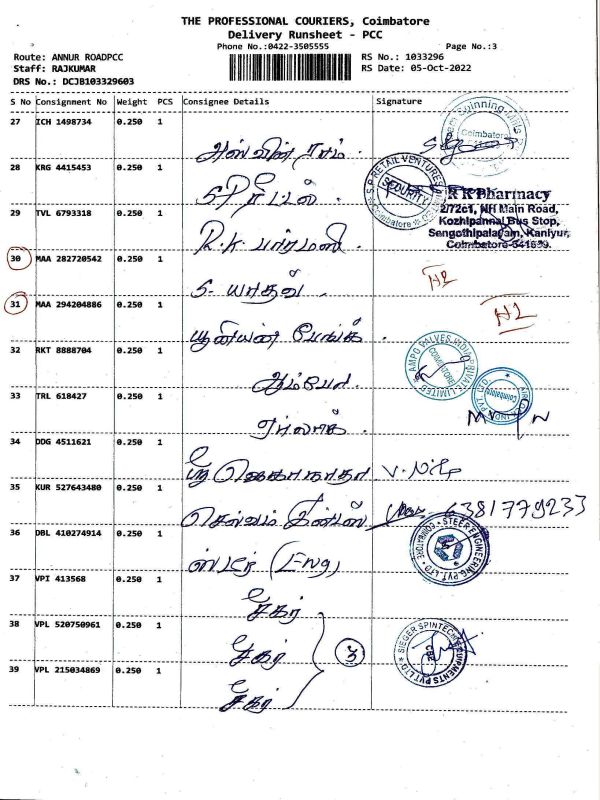 THE PROFESSIONAL COURIERS, Coimbatore
Delivery Runsheet - PCC
Phone No.:0422-3505555
Page No.:3
Route: ANNUR ROADPCC
RS No.: 1033296
Staff: RAJKUMAR
RS Date: 05-Oct-2022
DRS No.: DCJB103329603
S No Consignment No Weight PCS Consignee Details Signature
27 ICH 1498734 0.250 1
அஸ்வின் ராம்.
Coimbatore
28 KRG 4415453 0.250 1
S.P ரீடடல்.
S.P RETAIL VENTURES
SECURITY
Coimbatore
29 TVL 6793318 0.250 1
R.K பார்மஸி
R K Pharmacy
2/72c1, NH Main Road,
Kozhipannai Bus Stop,
Sengothipalayam, Kaniyur,
Coimbatore-641659.
30 MAA 282720542 0.250 1
S. யாதவ்
H2
31 MAA 294204886 0.250 1
யூனியன் பேங்க்.
H2
32 RKT 8888704 0.250 1
ஆம்போ
AMPO VALVES INDIA PRIVATE LIMITED
COIMBATORE
33 TRL 618427 0.250 1
ஏர்லாக்.
Coimbatore
34 DDG 4511621 0.250 1
ஸ்ரீ ஜெகநாதா
35 KUR 527643480 0.250 1
செல்வம்
6381779233
36 DBL 410274914 0.250 1
ஸ்டீர் (Eng)
STEER ENGINEERING PVT LTD
COIMBATORE
37 VPI 413568 0.250 1
சீகர்
38 VPL 520750961 0.250 1
சீகர்
3
SIEGER SPINTECH EQUIPMENTS PVT LTD
CBE
39 VPL 215034869 0.250 1
சீகர்